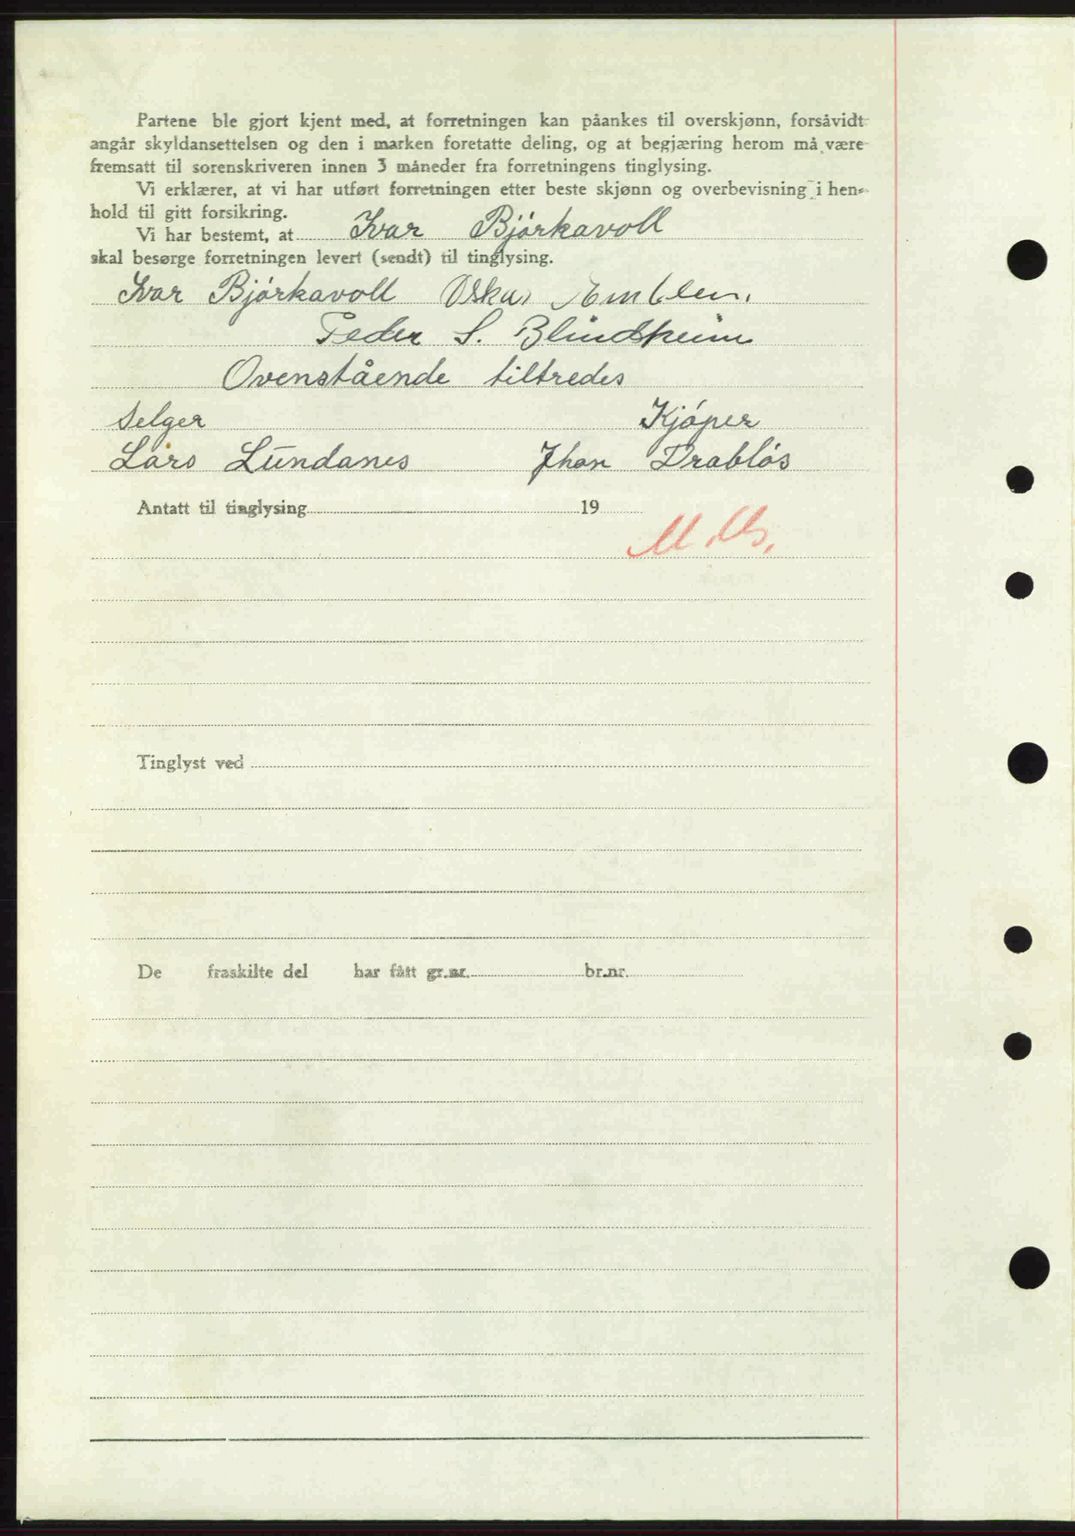 Partene ble gjort kjent med, at forretningen kan påankes til overskjønn, forsåvidt
angår skyldansettelsen og den i marken foretatte deling, og at begjæring herom må være
fremsatt til sorenskriveren innen 3 måneder fra forretningens tinglysing.
Vi erklærer, at vi har utført forretningen etter beste skjønn og overbevisning i hen-
hold til gitt forsikring.
Vi har bestemt, at Ivar Bjórkavoll
skal besørge forretningen levert (sendt) til tinglysing.
Ivar Bjórkavoll Oskar Emblem.
Peder S. Blindheim
Ovenstående tiltredes
Selger Kjóper
Lars Lundanes Jhan Drablós
Antatt til tinglysing 19
Tinglyst ved
De fraskilte del har fått gr.nr. br.nr.